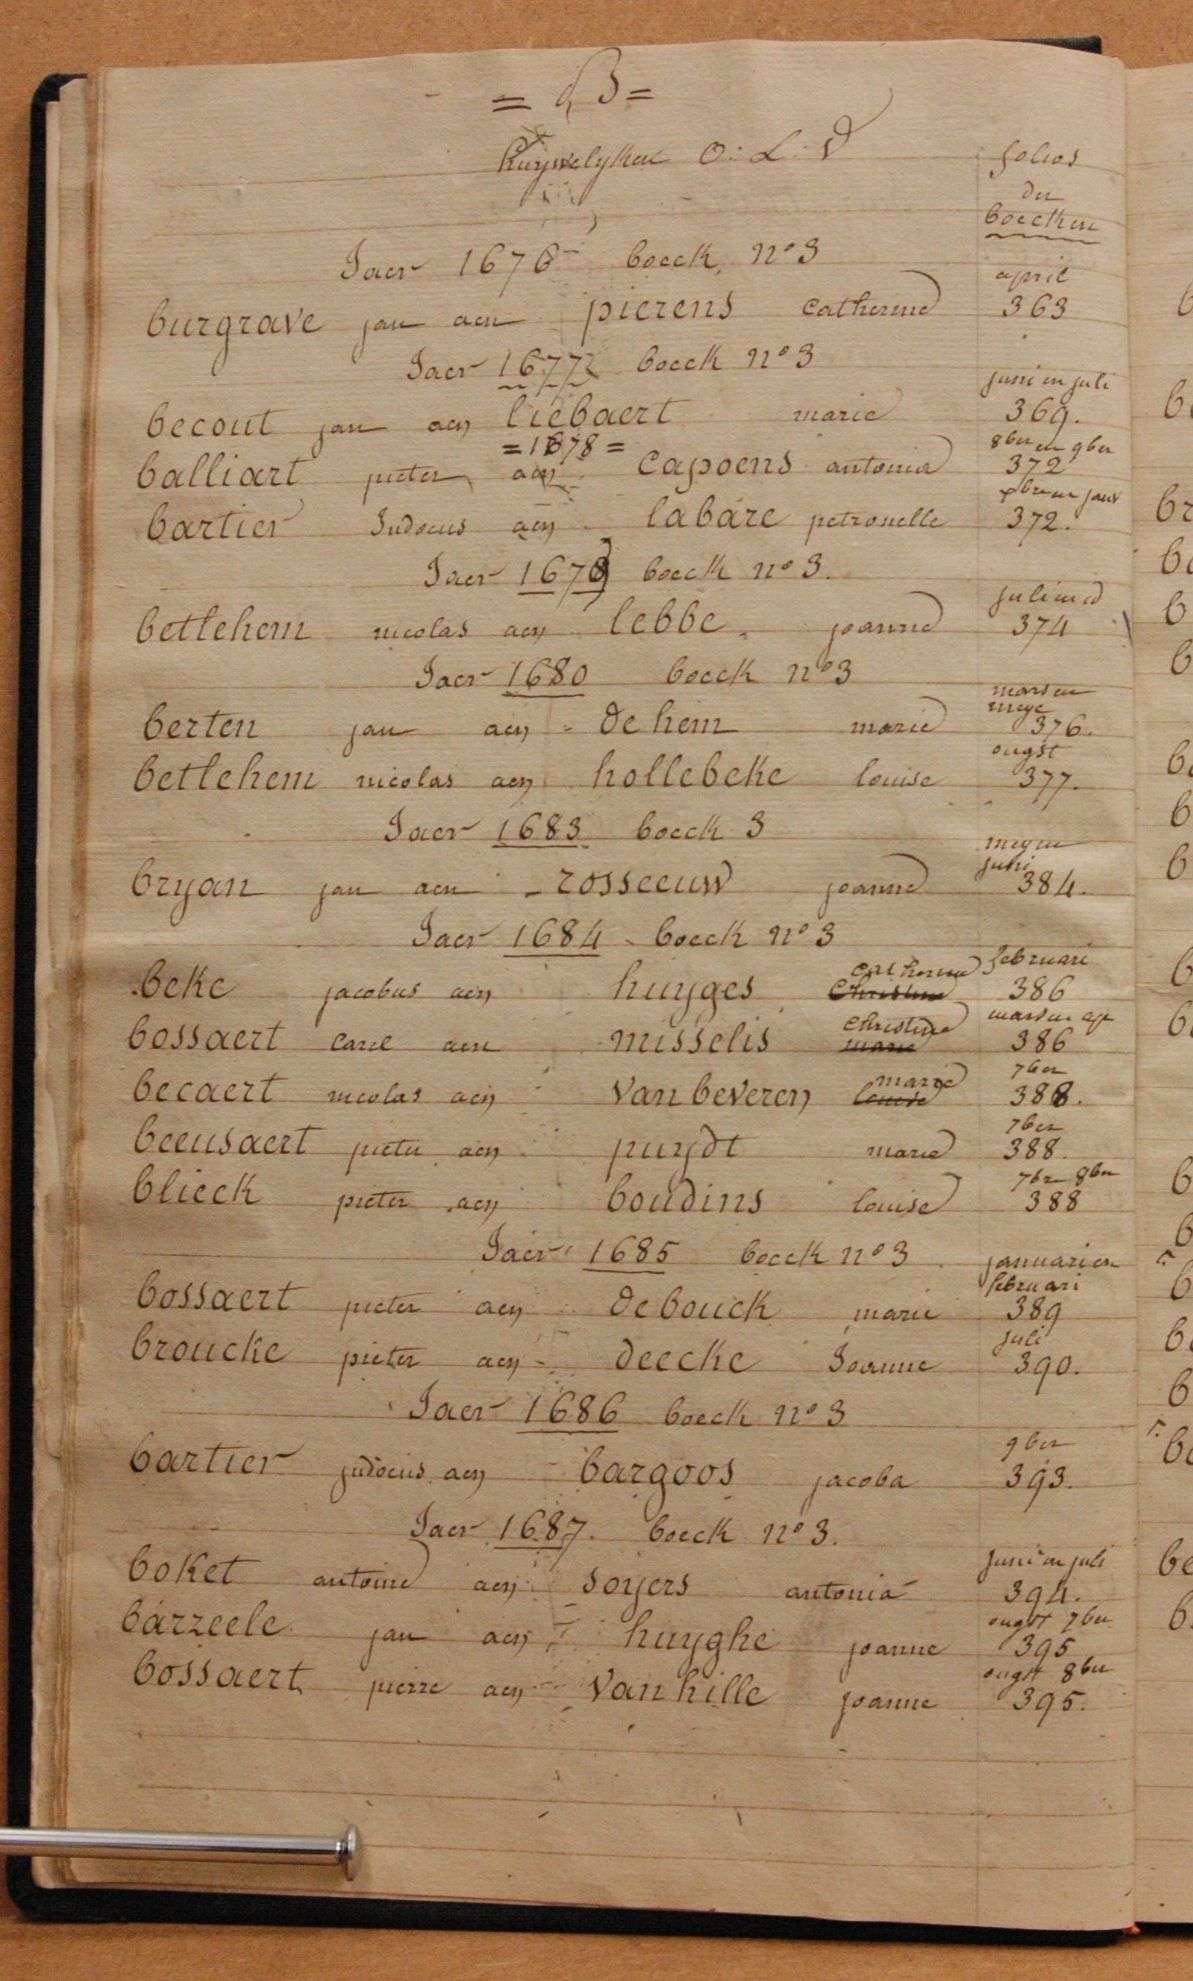 = B =
huywelyken O: L: V
folios
der
boecken
Jaer 1676 boeck n° 3
april
burgrave jan aen pierens catherine 363
Jaer 1677 boeck n° 3
juni en juli
becout jan aen liebaert marie 369.
= 1678 =
8ber en 9ber
balliart pieter aen capoens antonia 372
bartier Judocus aen labare petronelle 372.
Jaer 1679 boeck n° 3.
betlehem nicolas aen lebbe joanne 374
Jaer 1680 boeck n° 3
mars en
meye
berten jan aen de hem marie 376.
ougst
betlehem nicolas aen hollebeke louise 377.
Jaer 1683 boeck 3
mey en
juni
bryan jan aen rosseeuw joanne 384.
Jaer 1684 boeck n° 3
catherine februari
beke jacobus aen huyges christine 386
christine mars en apr
bossaert carel aen misselis marie 386
marie 7ber
becaert nicolas aen van beveren louise 388.
7ber
beeusaert pieter aen puydt marie 388.
7ber 8ber
blieck pieter aen boudins louise 388
Jaer 1685 boeck n° 3
januari en
februari
bossaert pieter aen debouck marie 389
juli
broucke pieter aen deecke Joanne 390.
Jaer 1686 boeck n° 3
9ber
bartier judocus aen bargoos jacoba 393.
Jaer 1687. boeck n° 3.
juni en juli
boket antoine aen soyers antonia 394.
ougst 7ber
barzeele jan aen huyghe joanne 395
ougst 8ber
bossaert pierre aen van hille joanne 395.